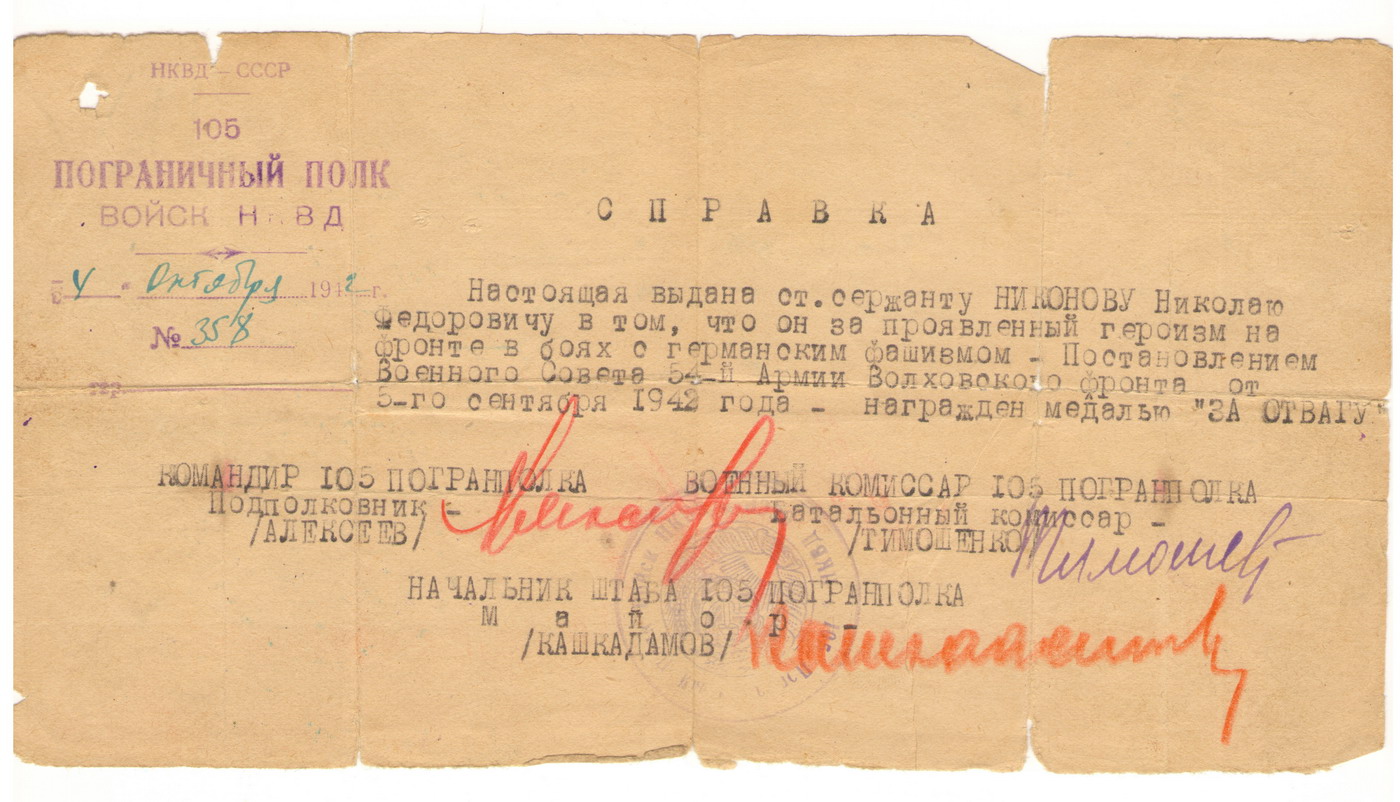 НКВД – СССР
105
ПОГРАНИЧНЫЙ ПОЛК
ВОЙСК НКВД
4 " Октября 1942 г.
№ 358
гор.
С П Р А В К А
Настоящая выдана ст.сержанту НИКОНОВУ Николаю
Федоровичу в том, что он за проявленный героизм на
фронте в боях с германским фашизмом – Постановлением
Военного Совета 54-й Армии Волховского фронта от
5-го сентября 1942 года – награжден медалью "ЗА ОТВАГУ"
КОМАНДИР 105 ПОГРАНПОЛКА
Подполковник –
/АЛЕКСЕЕВ/
ВОЕННЫЙ КОМИССАР 105 ПОГРАНПОЛКА
Батальонный комиссар –
/ТИМОШЕНКО/
НАЧАЛЬНИК ШТАБА 105 ПОГРАНПОЛКА
М а й о р –
/КАШКАДАМОВ/